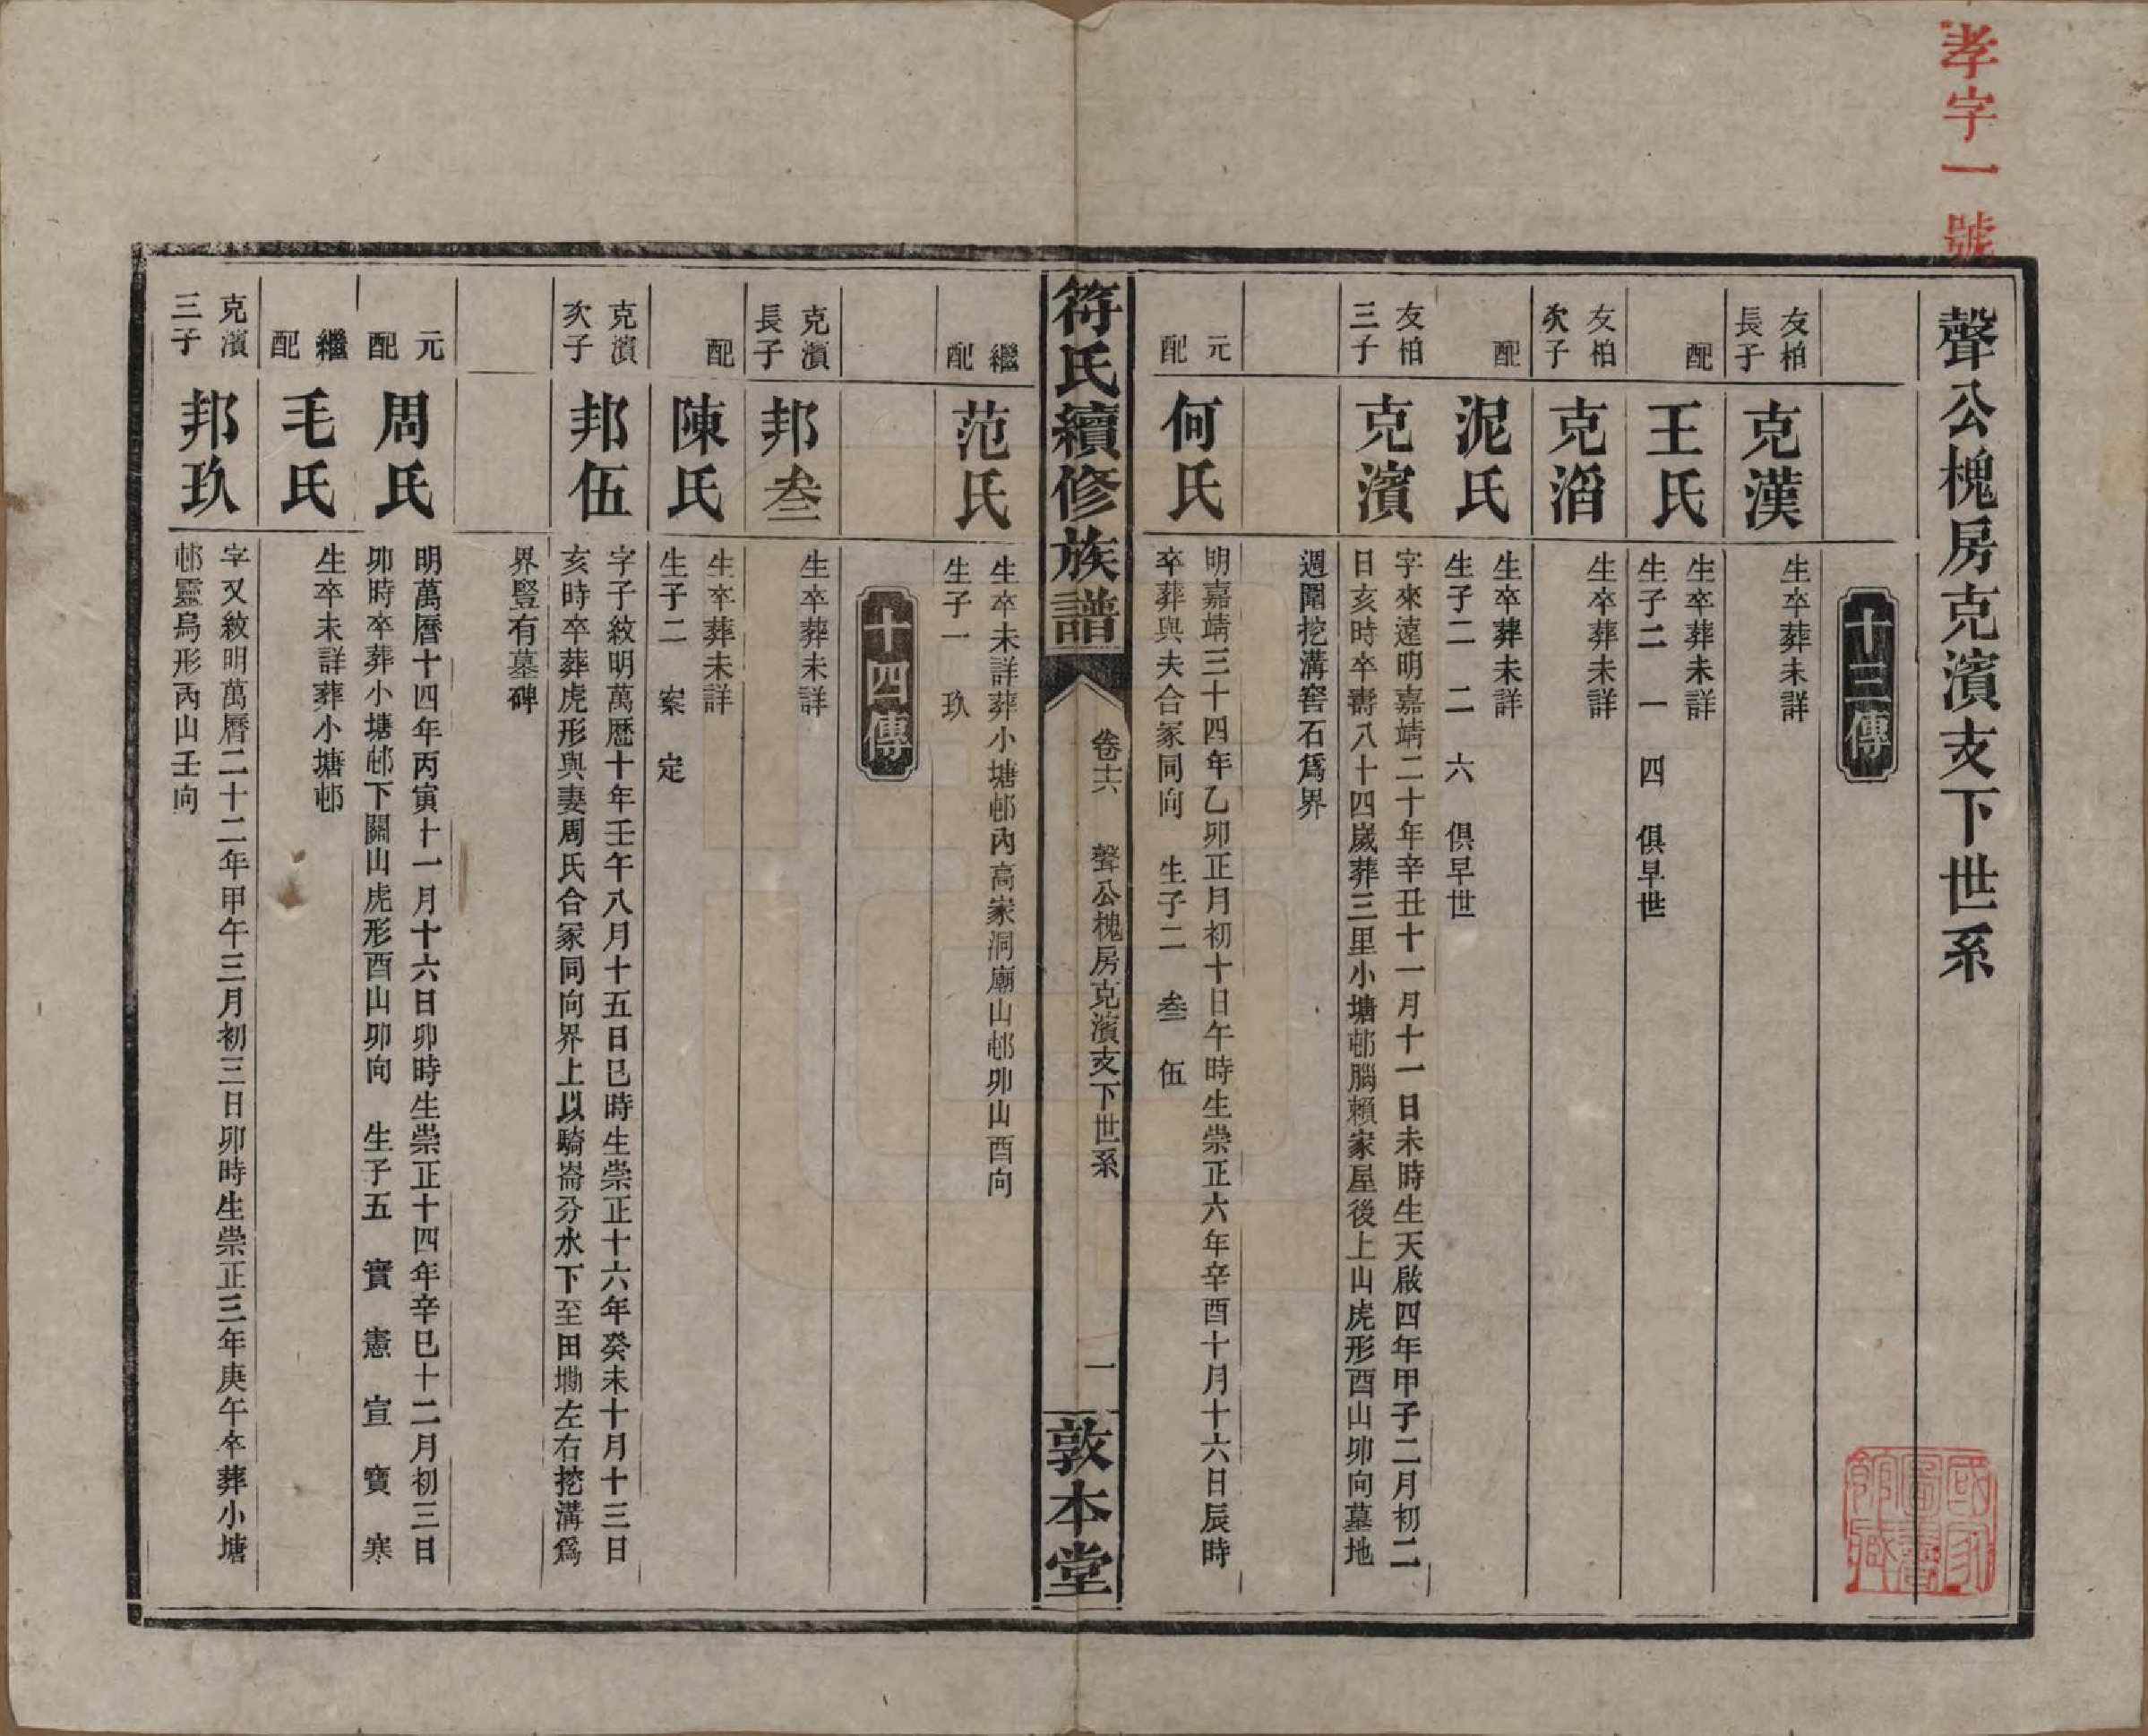 孝字一號
聲公槐房克濱支下世系
十三傳
友柏長子
克漢
生卒葬未詳
配
王氏
生卒葬未詳
生子二 一 四 俱早世
友柏次子
克滔
生卒葬未詳
配
泥氏
生卒葬未詳
生子二 二 六 俱早世
友柏三子
克濱
字來遠明嘉靖二十年辛丑十一月十一日未時生天啟四年甲子二月初二
日亥時卒壽八十四歲葬三里小塘邨腦賴家屋後上山虎形酉山卯向墓地
週圍挖溝窖石爲界
元配
何氏
明嘉靖三十四年乙卯正月初十日午時生崇正六年辛酉十月十六日辰時
卒葬與夫合冢同向 生子二 叁 伍
符氏續修族譜
卷十六 聲公槐房克濱支下世系
一
敦本堂
繼配
范氏
生卒未詳葬小塘邨內高家洞廟山邨卯山酉向
生子一 玖
十四傳
克濱長子
邦叁
生卒葬未詳
配
陳氏
生卒葬未詳
生子二 案 定
克濱次子
邦伍
字子紋明萬歷十年壬午八月十五日巳時生崇正十六年癸未十月十三日
亥時卒葬虎形與妻周氏合冢同向界上以騎崙分水下至田墈左右挖溝爲
界豎有墓碑
元配
周氏
明萬曆十四年丙寅十一月十六日卯時生崇正十四年辛巳十二月初三日
卯時卒葬小塘邨下關山虎形酉山卯向 生子五 實 憲 宣 寶 寒
繼配
毛氏
生卒未詳葬小塘邨
克濱三子
邦玖
字又紋明萬曆二十二年甲午三月初三日卯時生崇正三年庚午卒葬小塘
邨靈烏形丙山壬向
國家圖書館藏